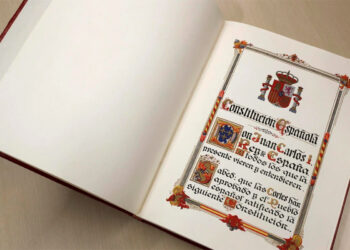 Constitución Española
Don Juan Carlos I
Rey de España
a todos los que la
presente vieren y entendieren
Sabed: que las Cortes han
aprobado y el Pueblo
español ratificado la
siguiente Constitución.